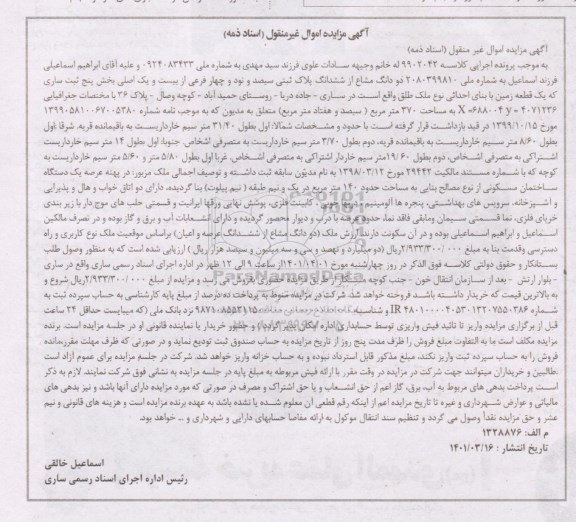 آگهی مزایده اموال غیرمنقول (اسناد ذمه)
آگهی مزایده اموال غیر منقول (اسناد ذمه)
به موجب پرونده اجرایی کلاسه ۹۹۰۲۰۴۳ له خانم وجیهه سادات علوی فرزند سید مهدی به شماره ملی ۰۹۲۴۰۸۳۴۳۳ و علیه آقای ابراهیم اسماعیلی
فرزند اسماعیل به شماره ملی ۲۰۸۰۳۹۹۸۱۰ دو دانگ مشاع از ششدانگ پلاک ثبتی سیصد و نود و چهار فرعی از بیست و یک اصلی بخش پنج ثبت ساری
که یک قطعه زمین با بنای احداثی نوع ملک طلق واقع است در ساری - جاده دریا - روستای حمید آباد - کوچه وصال - پلاک ۳۶ با مختصات جغرافیایی
X ۰۶۸۸۰۰۴ Y - ۴۰۷۱۲۳۶ به مساحت ۳۷۰ متر مربع ( سیصد و هفتاد متر مربع) متعلق به مدیون که به موجب نامه شماره ۱۳۹۹۰۵۸۱۰۰۶۷۰۰۵۳۸۰
مورخ ۱۳۹۹/۱۰/۱۵ در قید بازداشت قرار گرفته است با حدود و مشخصات شمالا: اول بطول ۳۱/۴۰ متر سیم خارداریست به باقیمانده قریه. شرقا :اول
بطول ۸/۶۰ متر سیم خارداریست به باقیمانده قریه، دوم بطول ۳/۷۰ متر سیم خارداریست به متصرفی اشخاص. جنوبا: اول بطول ۱۴ متر سیم خارداریست
اشتراکی به متصرفی اشخاص، دوم بطول ۱۹/۶۰متر سیم خاردار اشتراکی به متصرفی اشخاص. غربا اول بطول ۵/۸۰ متر و ۵/۶۰ متر سیم خارداریست به
کوچه که با شماره مستند مالکیت ۲۹۴۴۲ مورخ ۱۳۹۸/۰۳/۱۲ به نام مدیون سابقه ثبت داشته و توصیف اجمالی ملک مزبور: در پهنه عرصه یک دستگاه
ساختمان مسکونی از نوع مصالح بنایی به مساحت حدود ۱۴۰ متر مربع در یک و نیم طبقه ( نیم پیلوت) بنا گردیده، دارای دو اتاق خواب و هال و پذیرایی
و آشپزخانه، سرویس های بهداشتی، پنجره ها آلومینیم و درب چوبی، کابینت فلزی، پوشش نهایی ورقها ایرانیت و قسمتی حلب های موج دار با زیر بندی
خرپای فلزی، نما قسمتی سیمان ومابقی فاقد نما، حدود چهارطرفه با درب و دیوار محصور گردیده و دارای انشعابات آب و برق و گاز بوده و در تصرف مالکین
اسماعیل و ابراهیم اسماعیلی بوده و در آن سکونت دارند، ارزش ملک (دو دانگ مشاع از ششدانگ عرصه و اعیان) براساس موقعیت ملک نوع کاربری و راه
دسترسی وقدمت بنا به مبلغ ۲/۹۳۳/۳۰۰/۰۰۰ریال (دو میلیارد و نهصد و سی و سه میلیون و سیصد هزار ریال ) ارزیابی شده است که به منظور وصول طلب
بستانکار و حقوق دولتی کلاسه فوق الذکر در روز چهارشنبه مورخ ۱۴۰۱/۰۴/۰۱از ساعت ۹ الی ۱۲ ظهر در اداره اجرای اسناد رسمی ساری واقع در ساری
- بلوار ارتش - بعد از سازمان انتقال خون - جنب کوچه از طریق مزایده حضوری بفروش می رسد و مزایده از مبلغ ۲/۹۳۳/۳۰۰/۰۰۰ریال شروع و
به بالاترین قیمت که خریدار داشته باشد فروخته خواهد شد. شرکت در مزایده منوط به پرداخت ده درصد از مبلغ پایه کارشناسی به حساب سپرده ثبت به
شماره IR ۴۸۰۱۰۰۰۰۴۰۵۳۰۱۳۲۰۷۵۵۰۳۸۶ و شناسه نزد بانک ملی (که میبایست حداقل ۲۴ ساعت
قبل از برگزاری مزایده واریز تا تائید فیش واریزی توسط حسابداری اداره امکان پذیر گردد) و حضور خریدار یا نماینده قانونی او در جلسه مزایده است. برنده
مزایده مکلف است ما به التفاوت مبلغ فروش را ظرف مدت پنج روز از تاریخ مزایده به حساب صندوق ثبت تودیع نماید و در صورتی که ظرف مهلت مقرر،مانده
فروش را به حساب سپرده ثبت واریز نکند، مبلغ مذکور قابل استرداد نبوده و به حساب خزانه واریز خواهد شد. شرکت در جلسه مزایده برای عموم آزاد است
.طالبین و خریداران میتوانند جهت شرکت در مزایده در وقت مقرر با ارائه فیش مربوطه به مبلغ پایه در جلسه مزایده به نشانی فوق شرکت نمایند. لازم به ذکر
است پرداخت بدهی های مربوط به آب، برق، گاز اعم از حق انشعاب و یا حق اشتراک و مصرف در صورتی که مورد مزایده دارای آنها باشد و نیز بدهی های
مالیاتی و عوارض شهرداری و غیره تا تاریخ مزایده اعم از اینکه رقم قطعی آن معلوم شده یا نشده باشد به عهده برنده مزایده است و هزینه های قانونی و نیم
عشر و حق مزایده نقداً وصول می گردد و تنظیم سند انتقال موکول به ارائه مفاصا حسابهای دارایی و شهرداری و ... خواهد بود.
م الف: ۱۳۲۸۸۷۶
تاریخ انتشار : ۱۴۰۱/۰۳/۱۶
اسماعیل خالقی
رئیس اداره اجرای اسناد رسمی ساری